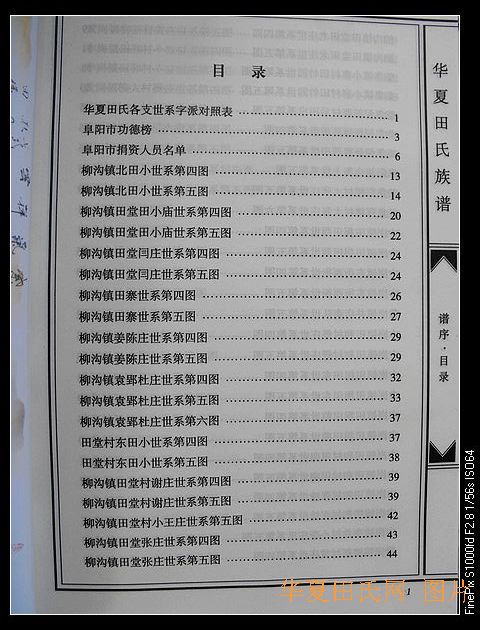 目 录
华夏田氏各支世系字派对照表 1
阜阳市功德榜 3
阜阳市捐资人员名单 6
柳沟镇北田小世系第四图 13
柳沟镇北田小世系第五图 14
柳沟镇田堂田小庙世系第四图 20
柳沟镇田堂田小庙世系第五图 22
柳沟镇田堂闫庄世系第四图 24
柳沟镇田堂闫庄世系第五图 24
柳沟镇田寨世系第四图 26
柳沟镇田寨世系第五图 27
柳沟镇姜陈庄世系第四图 29
柳沟镇姜陈庄世系第五图 29
柳沟镇袁郢杜庄世系第四图 32
柳沟镇袁郢杜庄世系第五图 33
柳沟镇袁郢杜庄世系第六图 37
田堂村东田小世系第四图 37
田堂村东田小世系第五图 38
柳沟镇田堂村谢庄世系第四图 39
柳沟镇田堂村谢庄世系第五图 39
柳沟镇田堂村小王庄世系第五图 42
柳沟镇田堂张庄世系第四图 43
柳沟镇田堂张庄世系第五图 44
华夏田氏族谱
谱序·目录
1
华夏田氏网 图片
FinePix S1000fd F2.8 1/56s ISO64